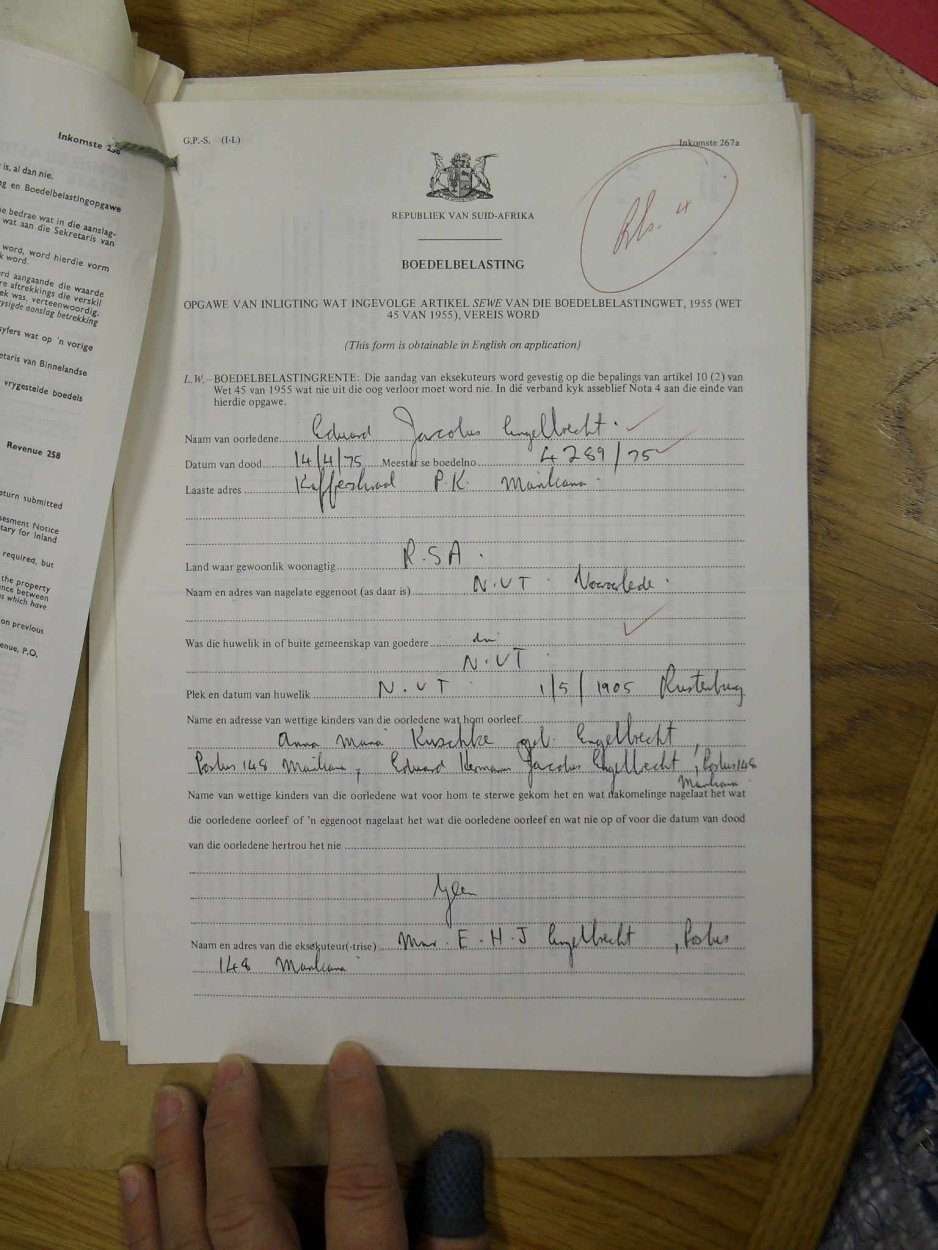 Inkomste 256
is, al dan nie.
ng en Boedelbelastingopgawe
ie bedrae wat in die aanslag-
wat aan die Sekretaris van
word, word hierdie vorm
k word.
rd aangaande die waarde
re aftrekkings die verskil
ek was, verteenwoordig,
ysigde aanslag betrekking
syfers wat op 'n vorige
etaris van Binnelandse
vrygestelde boedels
Revenue 258
eturn submitted
sesment Notice
tary for Inland
required, but
the property
ence between
s which have
on previous
enue, P.O.
G.P.-S. (I-L)
Inkomste 267a
REPUBLIEK VAN SUID-AFRIKA
BOEDELBELASTING
OPGAWE VAN INLIGTING WAT INGEVOLGE ARTIKEL SEWE VAN DIE BOEDELBELASTINGWET, 1955 (WET
45 VAN 1955), VEREIS WORD
(This form is obtainable in English on application)
L.W.—BOEDELBELASTINGRENTE: Die aandag van eksekuteurs word gevestig op die bepalings van artikel 10 (2) van
Wet 45 van 1955 wat nie uit die oog verloor moet word nie. In dié verband kyk asseblief Nota 4 aan die einde van
hierdie opgawe.
Naam van oorledene Eduard Jacobus Engelbrecht.
Datum van dood 14/4/75 Meester se boedelno 4289/75
Laaste adres Kafferskraal P.K. Marikana.
Land waar gewoonlik woonagtig R.S.A.
Naam en adres van nagelate eggenoot (as daar is) N.V.T. Vooroorlede.
Was die huwelik in of buite gemeenskap van goedere
N.V.T.
Plek en datum van huwelik N.V.T. 1/5/1905 Rustenburg
Name en adresse van wettige kinders van die oorledene wat hom oorleef
Anna Maria Kuschke geb. Engelbrecht,
Posbus 148 Marikana, Eduard Hermanus Jacobus Engelbrecht, Posbus 148
Marikana
Name van wettige kinders van die oorledene wat voor hom te sterwe gekom het en wat nakomelinge nagelaat het wat
die oorledene oorleef of 'n eggenoot nagelaat het wat die oorledene oorleef en wat nie op of voor die datum van dood
van die oorledene hertrou het nie
Geen
Naam en adres van die eksekuteur(-trise) Mnr. E.H.J Engelbrecht, Posbus
148 Marikana